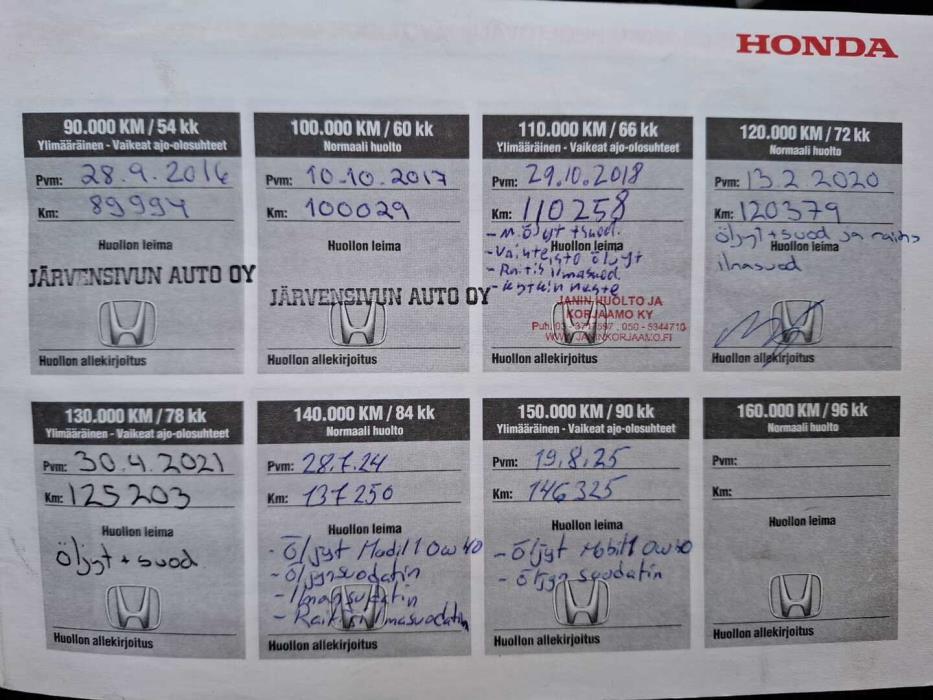 HONDA
90.000 KM / 54 kk
Ylimääräinen - Vaikeat ajo-olosuhteet
Pvm: 28.9.2016
Km: 89994
Huollon leima
JÄRVENSIVUN AUTO OY
Huollon allekirjoitus
100.000 KM / 60 kk
Normaali huolto
Pvm: 10.10.2017
Km: 100029
Huollon leima
JÄRVENSIVUN AUTO OY
Huollon allekirjoitus
110.000 KM / 66 kk
Ylimääräinen - Vaikeat ajo-olosuhteet
Pvm: 29.10.2018
Km: 110258
- M.öljyt + suod.
Huollon leima
- Vaihteisto öljyt
- Raitis ilmasuod.
- kytkin neste
JANIN HUOLTO JA
KORJAAMO KY
Puh. 03 - 3717597, 050 - 5344710
WWW.JANINKORJAAMO.FI
Huollon allekirjoitus
120.000 KM / 72 kk
Normaali huolto
Pvm: 13.2.2020
Km: 120379
öljyt + suod ja raitis
Huollon leima
ilmasuod
Huollon allekirjoitus
130.000 KM / 78 kk
Ylimääräinen - Vaikeat ajo-olosuhteet
Pvm: 30.4.2021
Km: 125203
Huollon leima
öljyt + suod
Huollon allekirjoitus
140.000 KM / 84 kk
Normaali huolto
Pvm: 28.7.24
Km: 137250
Huollon leima
- Öljyt Modil 1 0w40
- Öljynsuodatin
- Ilmansuodatin
- Raikisilmasuodatin
Huollon allekirjoitus
150.000 KM / 90 kk
Ylimääräinen - Vaikeat ajo-olosuhteet
Pvm: 19.8.25
Km: 146325
Huollon leima
- Öljyt Mobil 1 0w40
- Öljyn suodatin
Huollon allekirjoitus
160.000 KM / 96 kk
Normaali huolto
Pvm:
Km:
Huollon leima
Huollon allekirjoitus